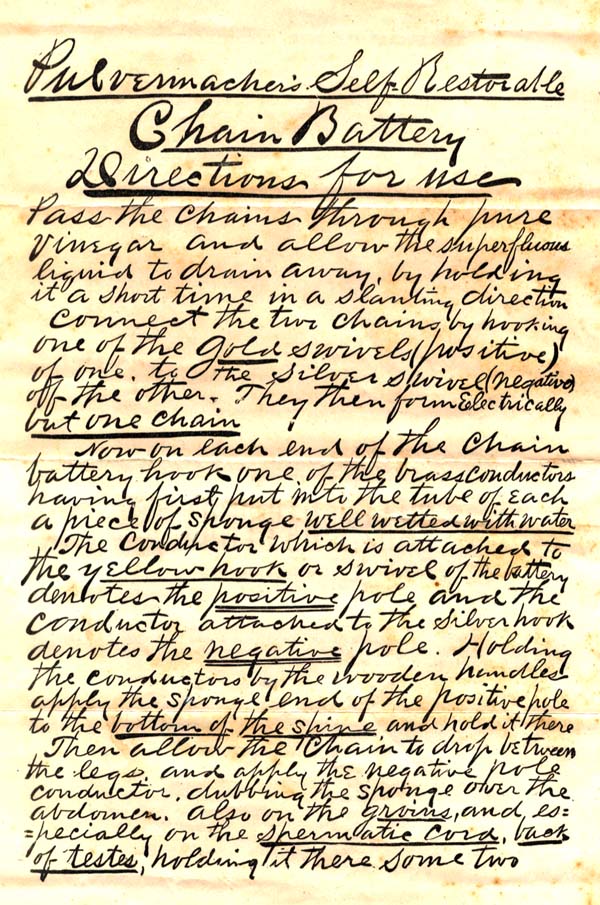 Pulvermacher's Self-Restorable
Chain Battery
Directions for use
Pass the chains through pure
Vinegar and allow the superfluous
liquid to drain away, by holding
it a short time in a slanting direction
Connect the two chains, by hooking
one of the gold swivels (positive)
of one, to the silver swivel (negative)
off the other. They then form Electrically
but one chain
Now on each end of the chain
battery hook one of the brass conductors
having first put into the tube of each
a piece of sponge well wetted with water
The conductor which is attached to
the yellow hook or swivel of the battery
denotes the positive pole and the
conductor attached to the silver hook
denotes the negative pole. Holding
the conductors by the wooden handles
apply the sponge end of the positive pole
to the bottom of the spine, and hold it there
Then allow the chain to drop between
the legs, and apply the negative pole
conductor, dubbing the sponge over the
abdomen, also on the groins, and es=
=pecially on the spermatic cord, back
of testes, holding it there some two